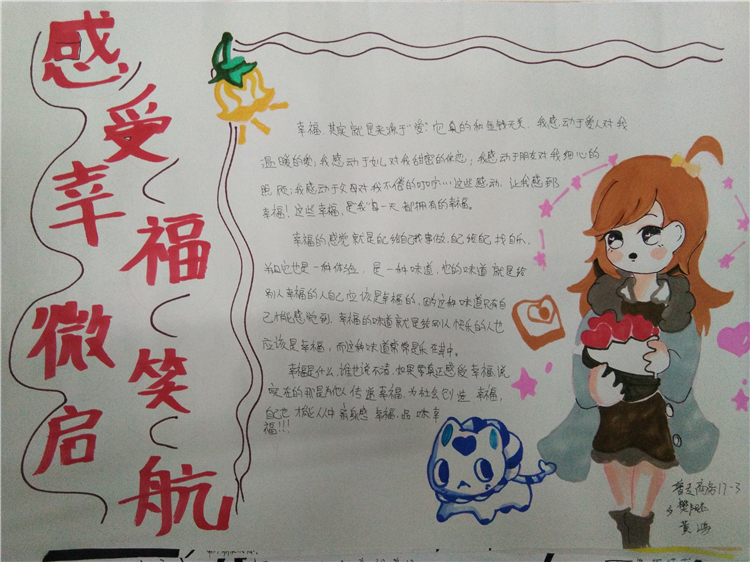 感受幸福微笑启航
幸福,其实就是来源于"爱"它真的和金钱无关,我感动于爱人对我
温暖的爱;我感动于女儿对我甜密的依恋;我感动于朋友对我细心的
照顾;我感动于父母对我不倦的叮咛…这些感动,让我感到
幸福!这些幸福,是我每一天都拥有的幸福。
幸福的感觉就是自己给自己找事做,自己给自己找自乐,
知它也是一种体验,是一种味道,它的味道就是给
别人幸福的人自己应该是幸福的,因为这种味道只有自
己才能感觉到,幸福的味道就是给别人快乐的人也
应该是幸福,而这种味道常常是乐在其中。
幸福是什么,谁也说不清,如果要真正感受幸福,说
实在的那是为他人传递幸福,为社会创造幸福,
自己才能从中亲身感幸福,品味幸
福!!!
商务17-3